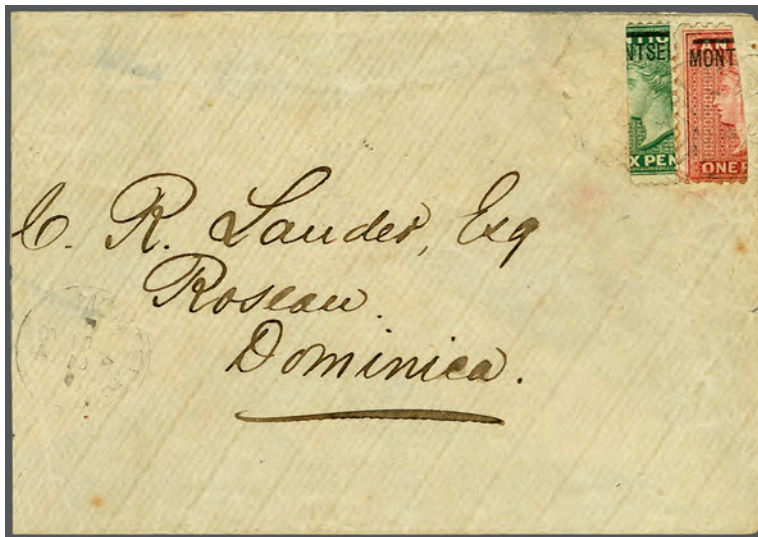 NTIG
NTSE
X PEN
AN
MONT
ONE P
C. R. Lauder, Esq
Roseau.
Dominica.